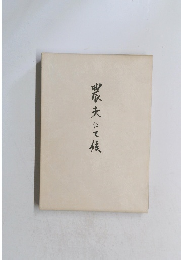 農夫にて候